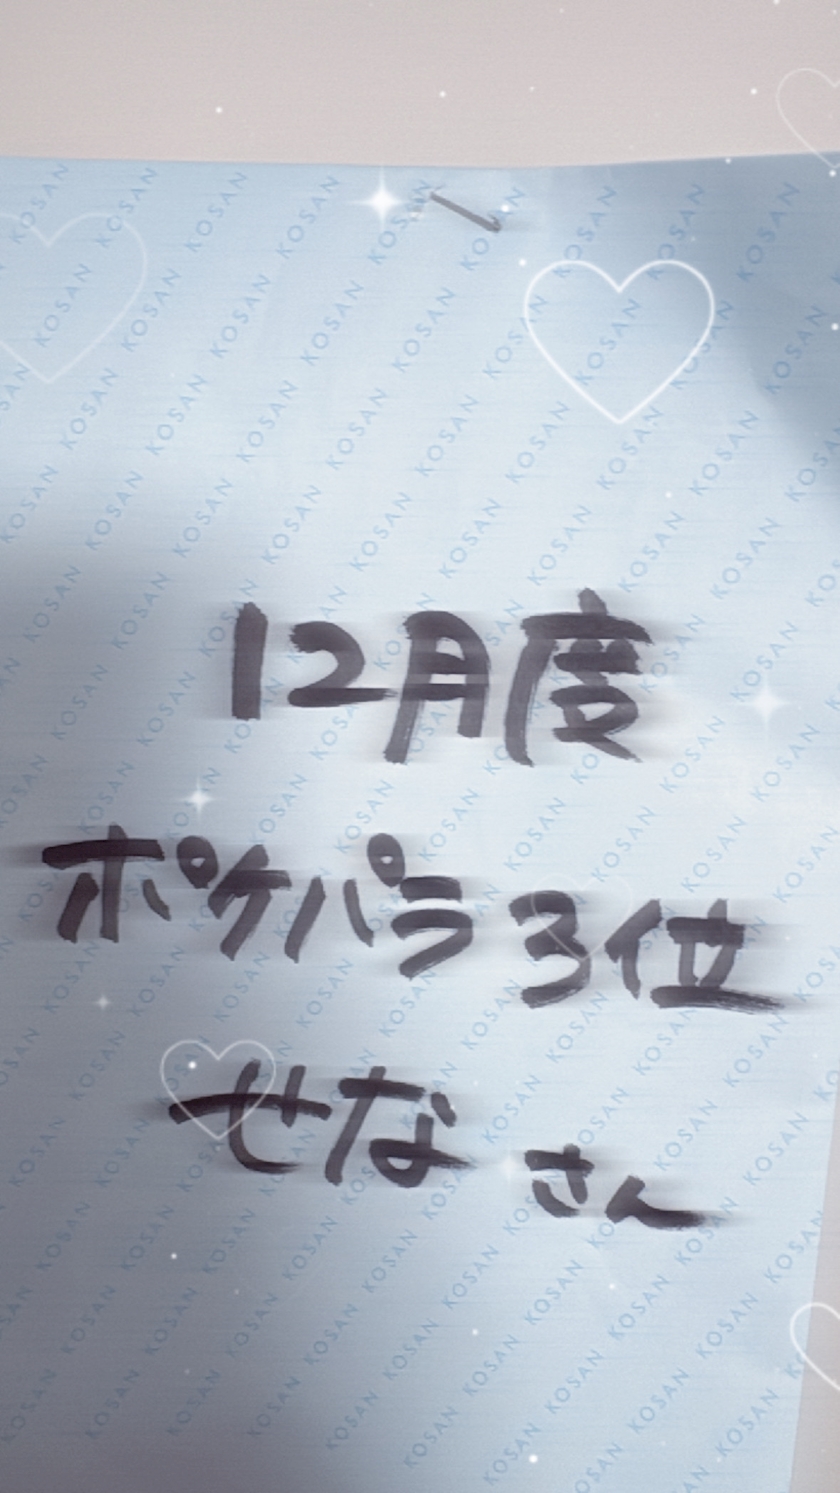 12月度
ポケパラ3位
せな さん
KOSAN